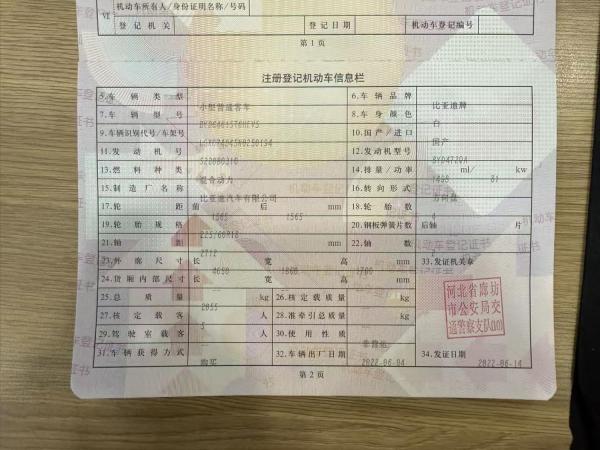 机动车所有人/身份证明名称/号码
VI
登记机关 登记日期 机动车登记编号
第1页
注册登记机动车信息栏
5.车辆类型 小型普通客车 6.车辆品牌 比亚迪牌
7.车辆型号 8.车身颜色 白
9.车辆识别代号/车架号 10.国产/进口 国产
11.发动机号 522080310 12.发动机型号 BYD472QA
13.燃料种类 混合动力 14.排量/功率 ml/ 81 kw
15.制造厂名称 比亚迪汽车有限公司 16.转向形式 方向盘
17.轮距 前 1565 后 1565 mm 18.轮胎数 4
19.轮胎规格 225/60R18 20.钢板弹簧片数 后轴 片
21.轴距 2712 mm 22.轴数
23.外廓尺寸 长 4650 宽 1860 高 1700 mm 33.发证机关章
24.货厢内部尺寸 长 宽 高 mm
25.总质量 2055 kg 26.核定载质量 kg
27.核定载客 5 人 28.准牵引总质量 kg
29.驾驶室载客 人 30.使用性质 非营运
31.车辆获得方式 购买 32.车辆出厂日期 2022-06-04 34.发证日期 2022-06-14
河北省廊坊
市公安局交
通警察支队(m)
第2页
机动车登记证书